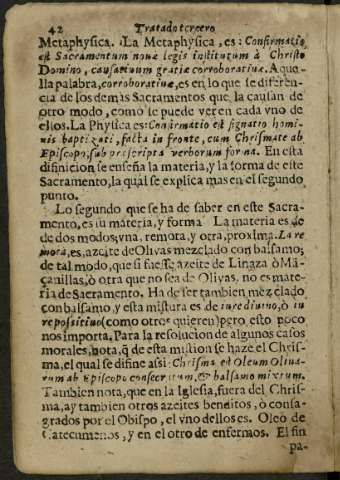 42 Tratado tercero
Metaphysica. La Metaphysica, es: Confirmatio
est Sacramentum novę legis institutum à Christo
Domino, causativum gratiæ corroborativæ. Aque-
lla palabra, corroborativæ, es en lo que se diferen-
cia de los demàs Sacramentos que la causan de
otro modo, como se puede ver en cada vno de
ellos. La Physica es: Confirmatio est signatio homi-
nis baptizati, facta in fronte, cum Chrismate ab
Episcopo, sub præscripta verborum forma. En esta
difinicion se enseña la materia, y la forma de este
Sacramento, la quàl se explica mas en el segundo
punto.
Lo segundo que se ha de saber en este Sacra-
mento, es su materia, y forma La materia es de
de dos modos; vna, remota, y otra, proxima. La re-
mota, es, azeite de Olivas mezclado con balsamo;
de tal modo, que si fuesse azeite de Linaza ò Mã-
çanillas, ò otra que no sea de Olivas, no es mate-
ria de Sacramento. Ha de ser tambien mezclado
con balsamo, y esta mistura es de iure divino, ò iu
re positivo (como otros quieren) pero esto poco
nos importa. Para la resolucion de algunos casos
morales, nota, q̃ de esta mistion se haze el Chris-
ma, el qual se difine assi: Chrisma est Oleum Oliva-
rum ab Episcopo consecratum, & balsamo mixtum.
Tambien nota, que en la Iglesia, fuera del Chris-
ma, ay tambien otros azeites benditos, ò consa-
grados por el Obispo, el vno dellos es. Oleo de
Catecumenos, y en el otro de enfermos. El fin
pa-